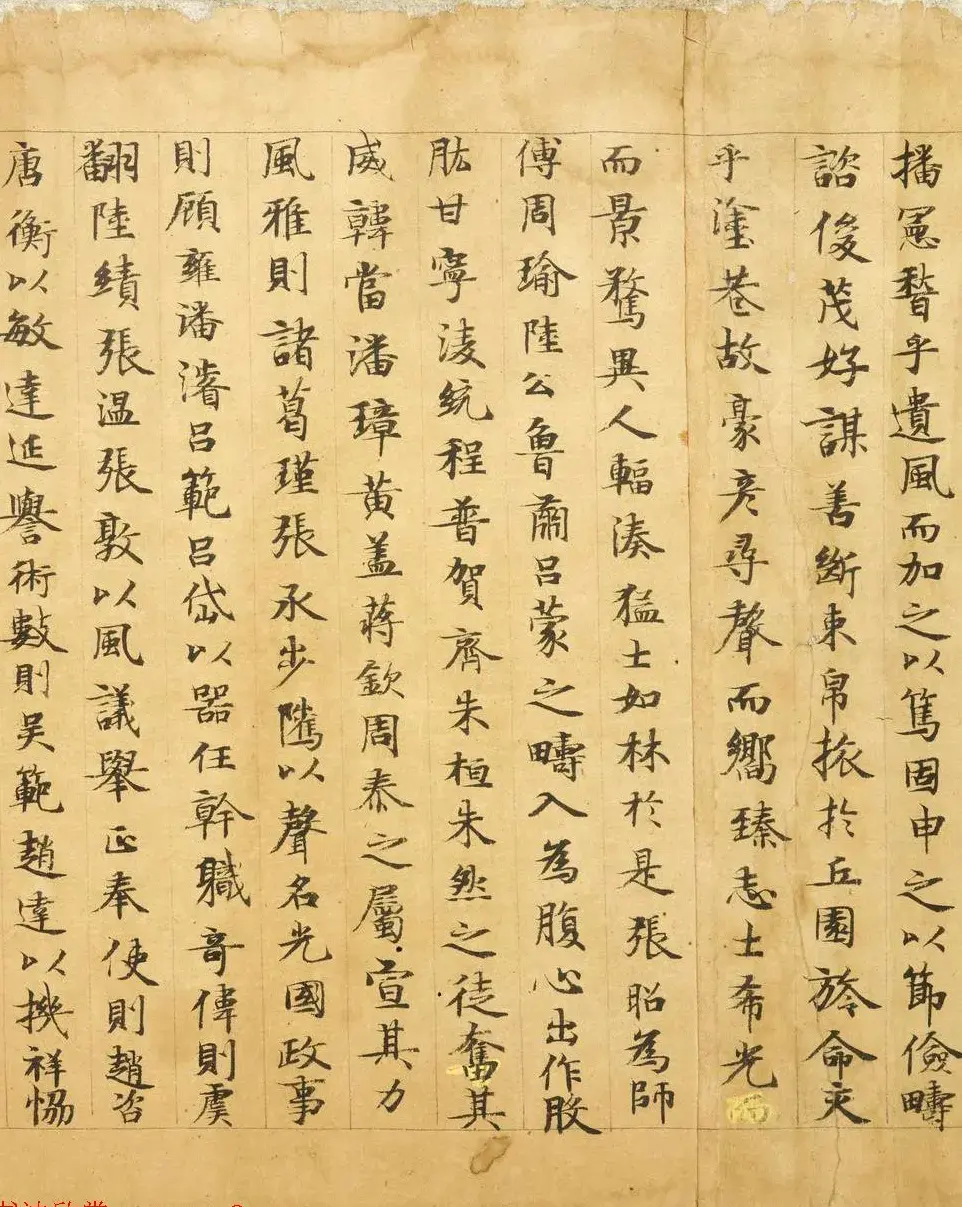 播憲稽乎遺風而加之以篤固申之以節儉疇
諮俊茂好謀善斷束帛振於丘園旍命交
乎塗巷故豪彦尋聲而嚮臻志士希光而
而景騖異人輻湊猛士如林於是張昭為師
傅周瑜陸公魯肅呂蒙之疇入為腹心出作股
肱甘寧淩統程普賀齊朱桓朱然之徒奮其
威韓當潘璋黃蓋蔣欽周泰之屬宣其力
風雅則諸葛瑾張承步隲以聲名光國政事
則顧雍潘濬呂範呂岱以器任幹職奇偉則虞
翻陸績張温張敦以風議舉正奉使則趙咨
唐衡以敏達延譽術數則吳範趙達以機祥恊